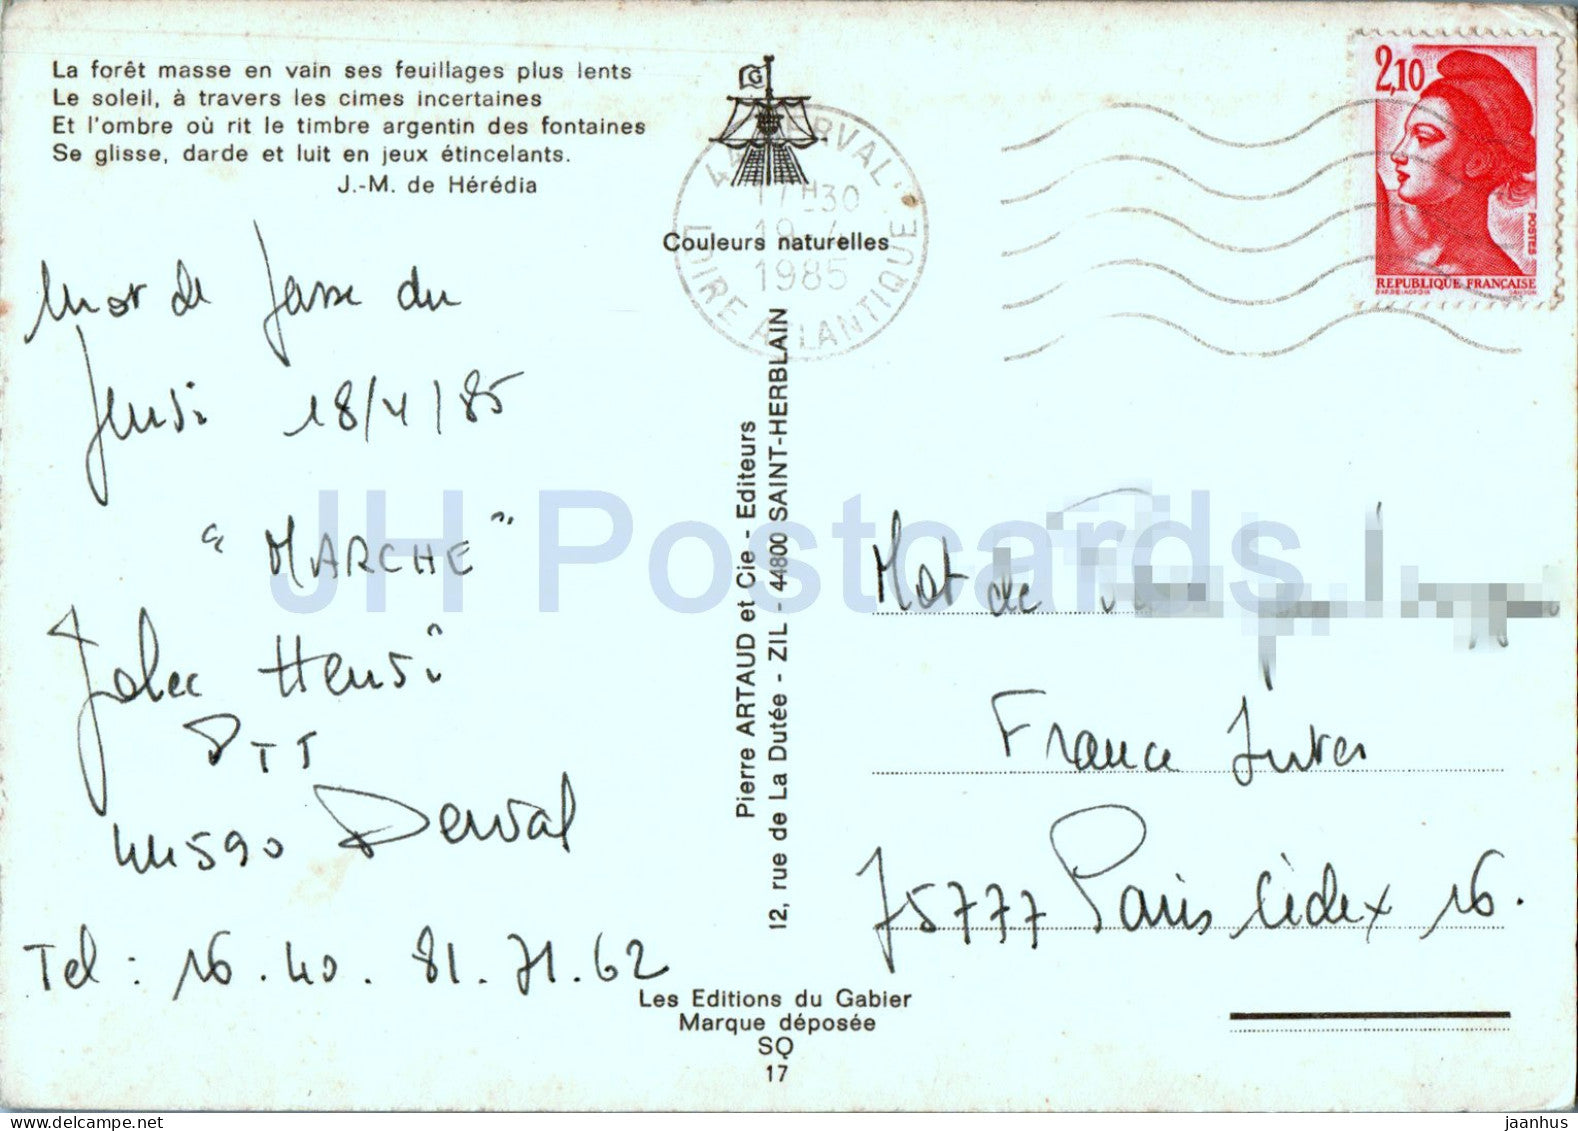 La forêt masse en vain ses feuillages plus lents
Le soleil, à travers les cimes incertaines
Et l'ombre où rit le timbre argentin des fontaines
Se glisse, darde et luit en jeux étincelants.
J.-M. de Hérédia
G
44 DERVAL
17H30
19-4
1985
LOIRE ATLANTIQUE
2,10
POSTES
REPUBLIQUE FRANCAISE
Couleurs naturelles
Mot de du
Jeudi 18/4/85
"MARCHE"
Henri
PTT
44590 Derval
Tel : 16.40.81.71.62
Pierre ARTAUD et Cie - Editeurs
12, rue de La Dutée - ZIL - 44800 SAINT-HERBLAIN
Les Editions du Gabier
Marque déposée
SQ
17
Mot de
France Inter
75777 Paris Cédex 16.
JH Postcards
https://jhpostcards.com
jaanhus